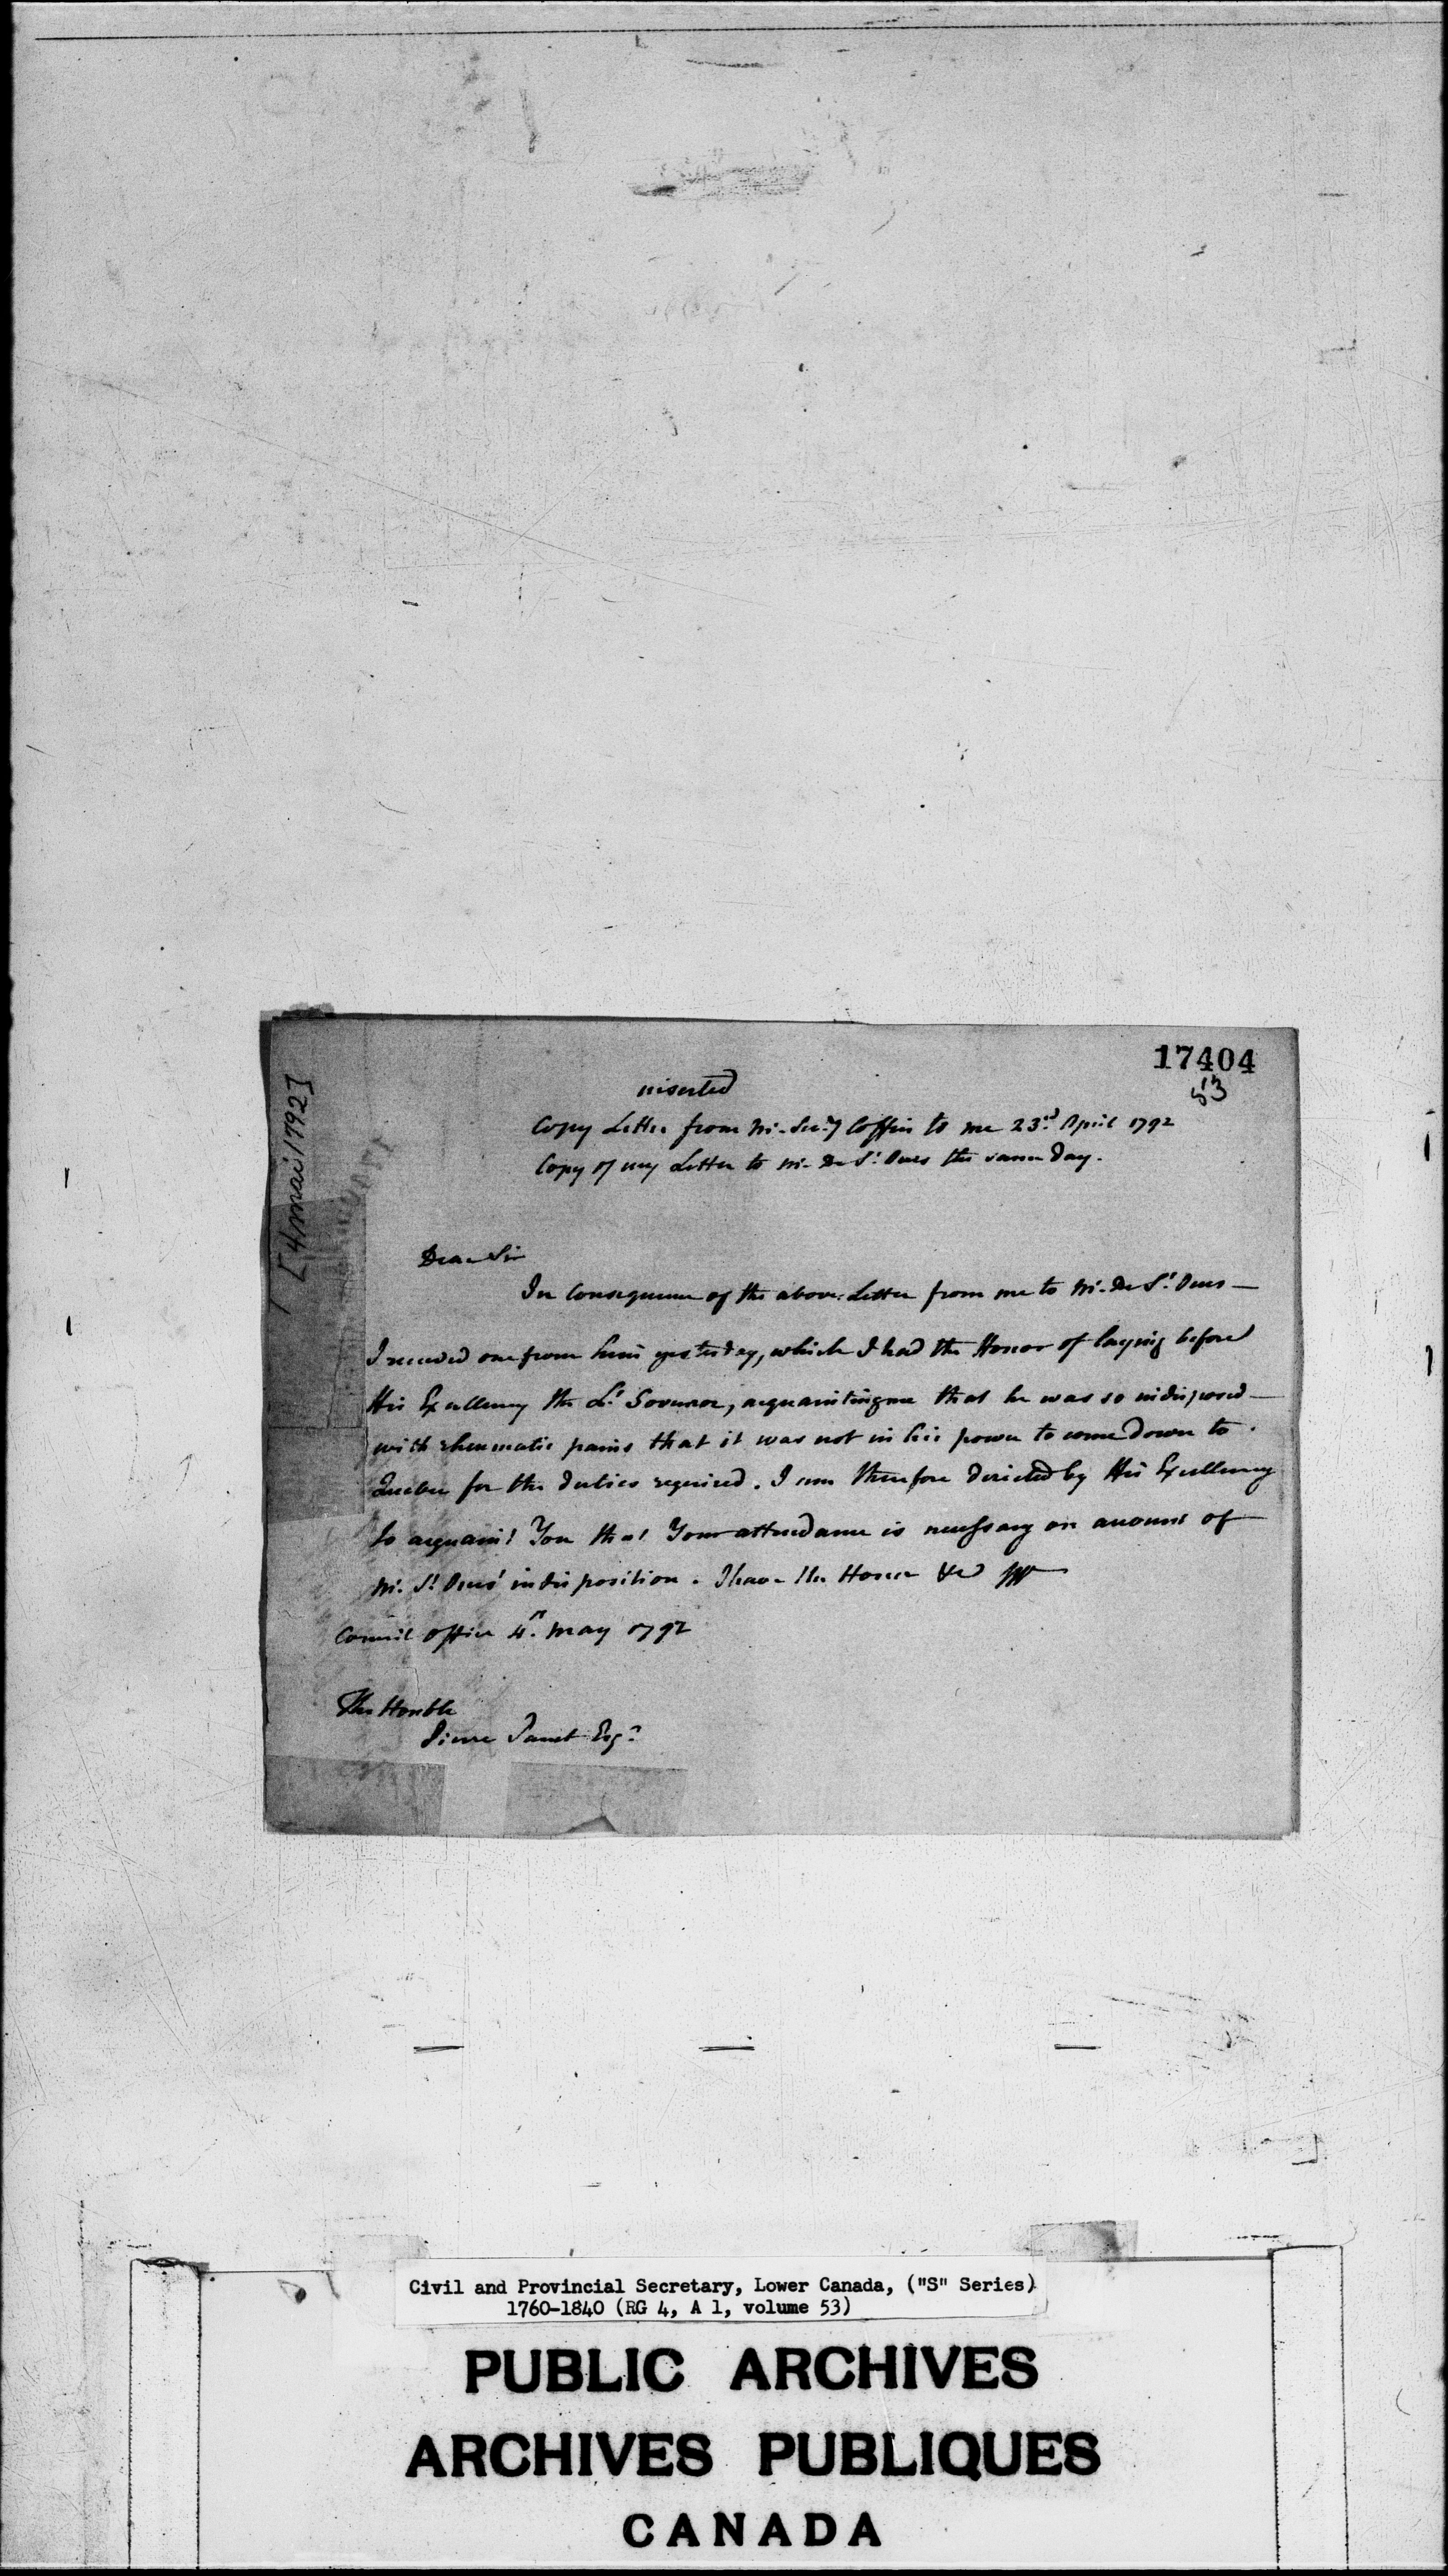 17404
53
[4 mai 1792]
inserted
Copy Letter from Mr. Secy Coffin to me 23rd. April 1792
Copy of my Letter to Mr. De St. Ours the same day.
Dear Sir
In Consequence of the above Letter from me to Mr. De St. Ours —
I received one from him yesterday, which I had the Honor of laying before
His Excellency the Lt. Governor, acquainting me that he was so indisposed —
with rheumatic pains that it was not in his power to come down to
Quebec for the duties required. I am therefore directed by His Excellency
to acquaint You that Your attendance is necessary on account of
Mr. St. Ours' indisposition. I have the Honor &c
Council Office 4th. May 1792
The Honble
Pierre Panet Esqr.
Civil and Provincial Secretary, Lower Canada, ("S" Series)
1760-1840 (RG 4, A 1, volume 53)
PUBLIC ARCHIVES
ARCHIVES PUBLIQUES
CANADA